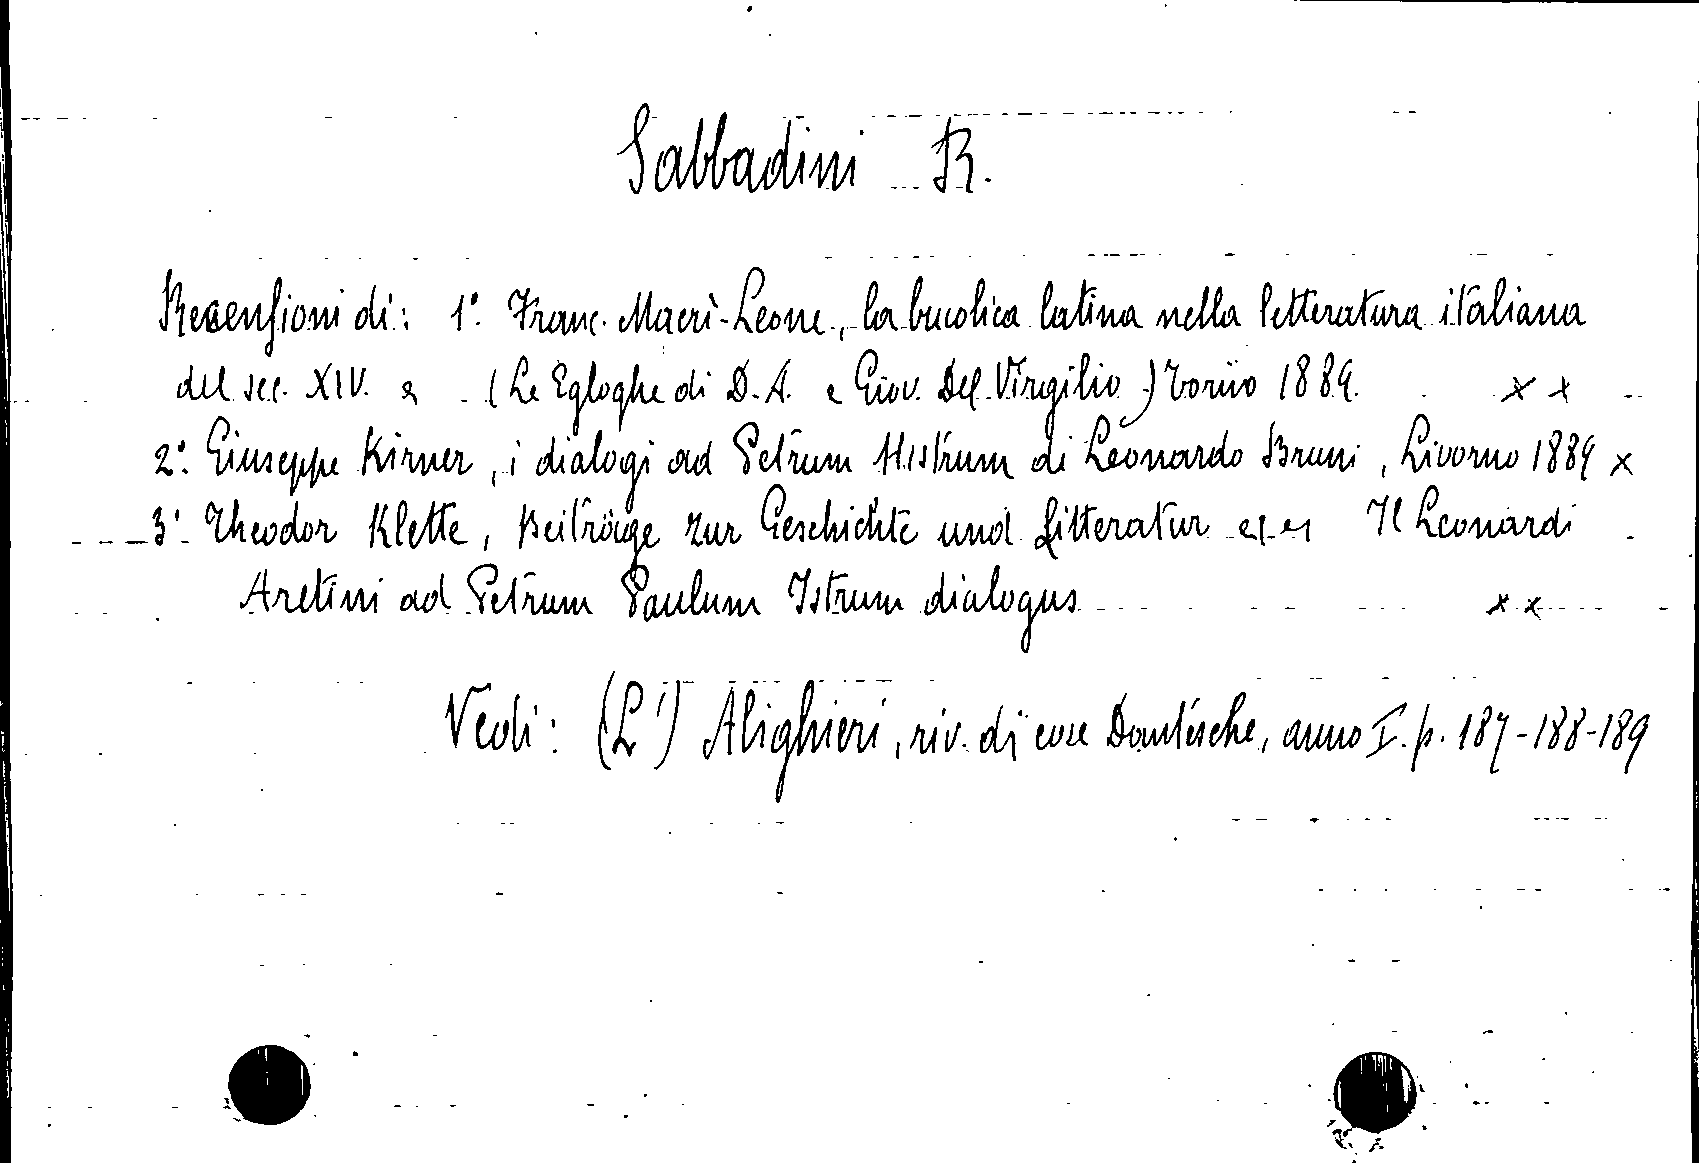 Sabbadini R.
Recensioni di: 1° Franc. Macrì-Leone, la bucolica latina nella letteratura italiana
del sec. XIV. (Le Egloghe di D. A. e Giov. Del Virgilio) Torino 1889. x x
2° Giuseppe Kirner, i dialogi ad Petrum Histrum di Leonardo Bruni, Livorno 1889 x
3° Theodor Klette, Beiträge zur Geschichte und Litteratur Il Leonardi
Aretini ad Petrum Paulum Istrum dialogus x x
Vedi: (L') Alighieri, riv. di cose Dantesche, anno I. p. 187-188-189